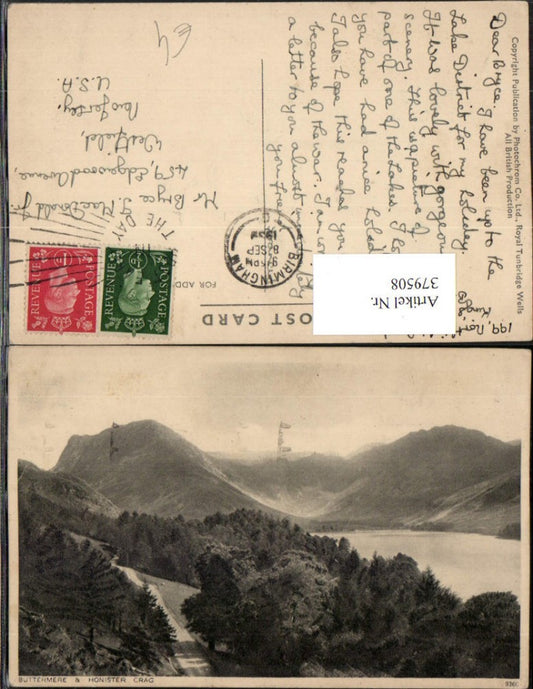 £4
Dear Bryce. I have been up to the
Lake District for my holiday.
It was lovely with gorgeous
scenery. This is a picture of
part of one of the Lakes. I
you have had a nice
I also hope this reaches you
because of the war. I am
a letter to you almost
you
199,
Copyright Publication by Photochrom Co. Ltd., Royal Tunbridge Wells
All British Production
Mr Bryce J. MacDonald Jr.
459, Edgewood Avenue,
Westfield,
New Jersey,
U.S.A.
THE DAY
BIRMINGHAM
8 SEP
REVENUE
POSTAGE
REVENUE
POSTAGE
FOR ADD
POST CARD
Artikel Nr.
379508
BUTTERMERE & HONISTER CRAG